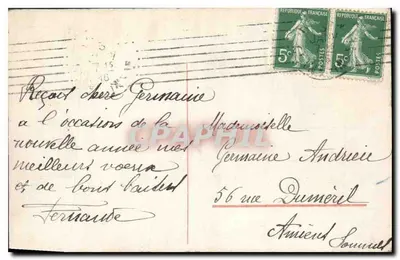 REPUBLIQUE FRANÇAISE REPUBLIQUE FRANÇAISE
5c 5c
POSTES POSTES
Reçois chère Germaine
a l'occasion de la
nouvelle année mes
meilleurs voeux
et de bons baisers
Fernande
Mademoiselle
Germaine Andrieu
56 rue Duméril
Amiens
Somme
CPAPHIL